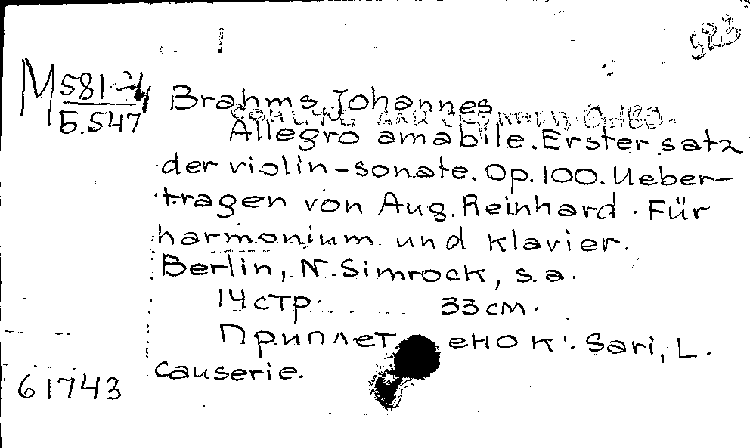 М 581-2/
Б.547
Brahms, Johannes
Allegro amabile. Erster satz
der violin-sonate. Op. 100. Ueber-
tragen von Aug. Reinhard. Für
harmonium und klavier.
Berlin, N. Simrock, s.a.
14 стр. 33 см.
Приплетено к: Sari, L.
Causerie.
61743